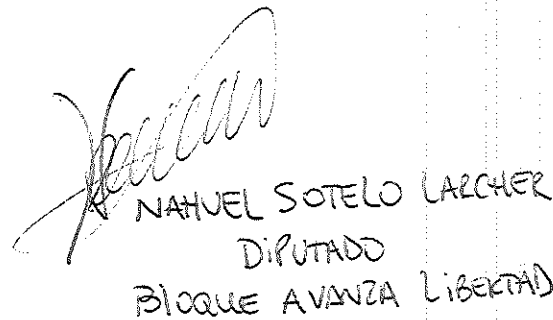 NAHUEL SOTELO LARCHER
DIPUTADO
BlOQUE AVANZA LIBERTAD